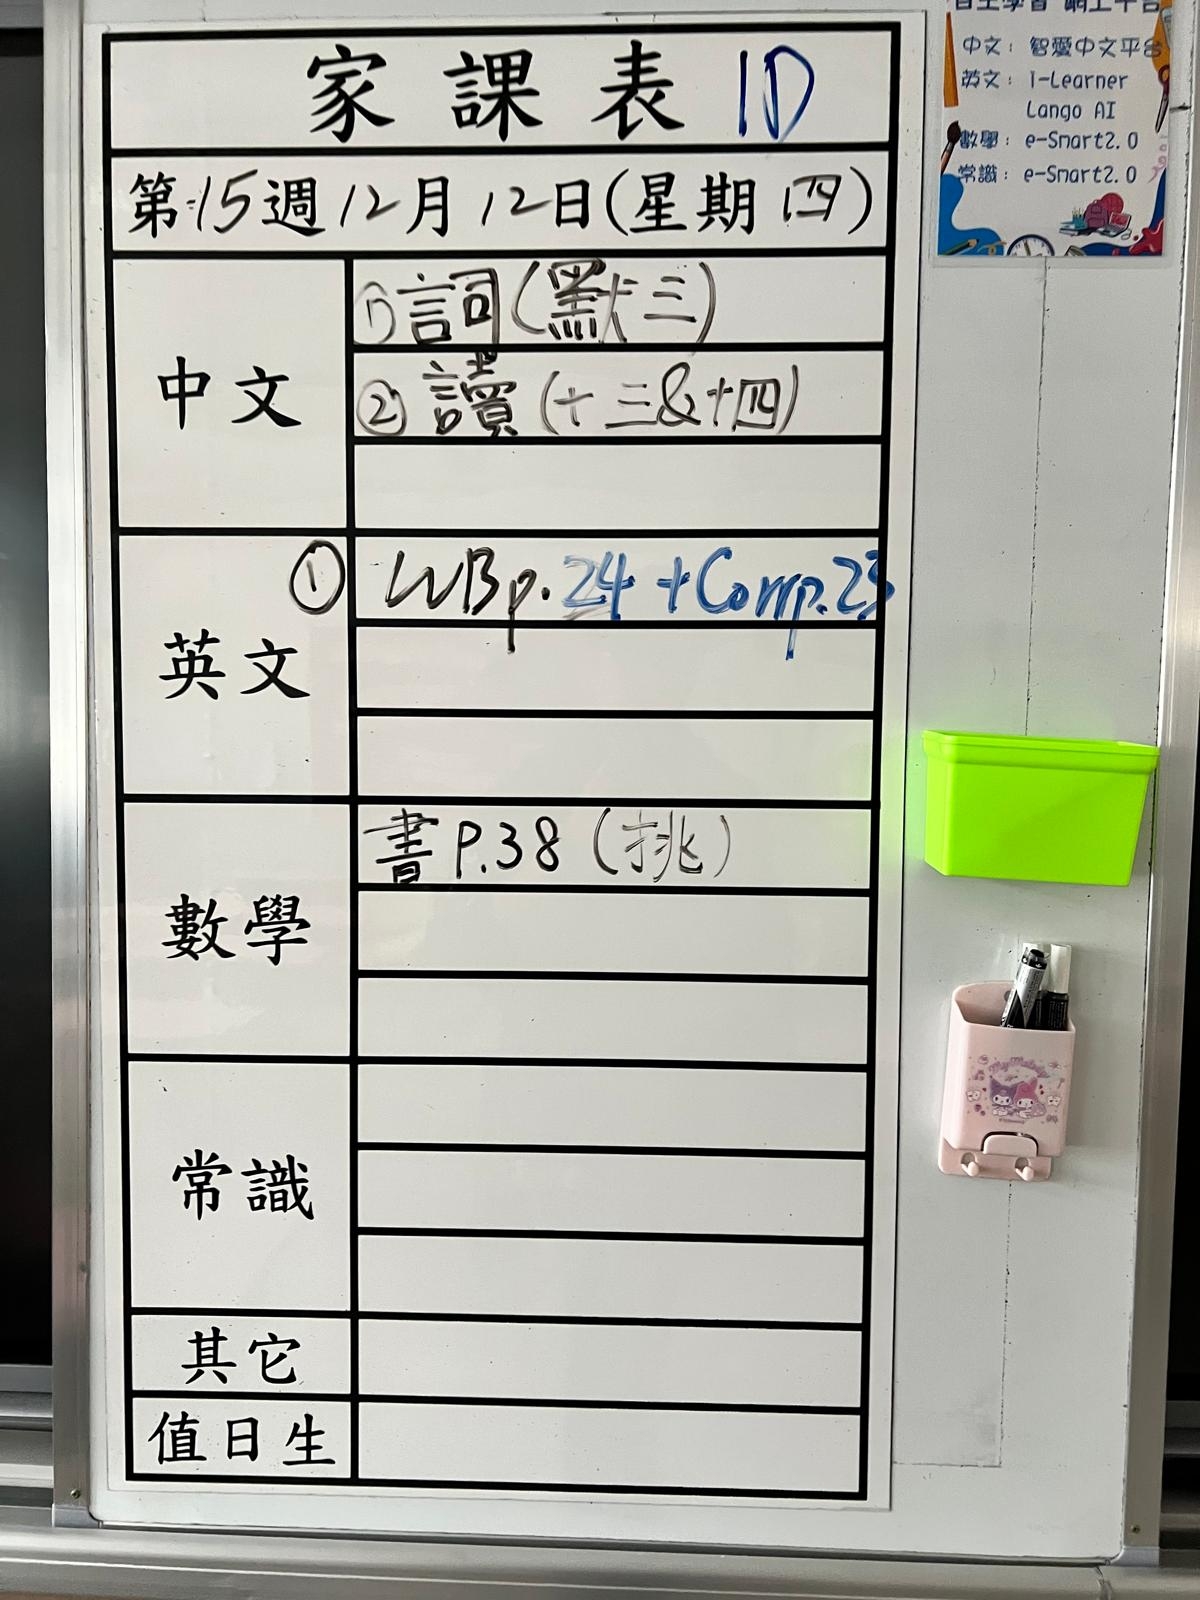 家課表 1D
第15週12月12日(星期四)
中文
① 詞(默三)
② 讀(十三&十四)
英文
① WBp.24 + Comp.23
數學
書P.38(挑)
常識
其它
值日生
自主學習 網上平台
中文：智愛中文平台
英文：i-Learner
Lango AI
數學：e-Smart2.0
常識：e-Smart2.0